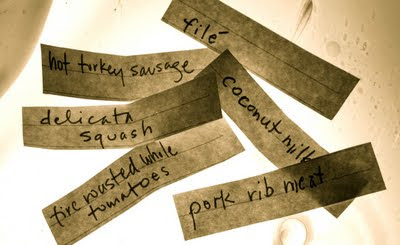 filé
hot turkey sausage
delicata
squash
coconut milk
fire roasted whole
tomatoes
pork rib meat